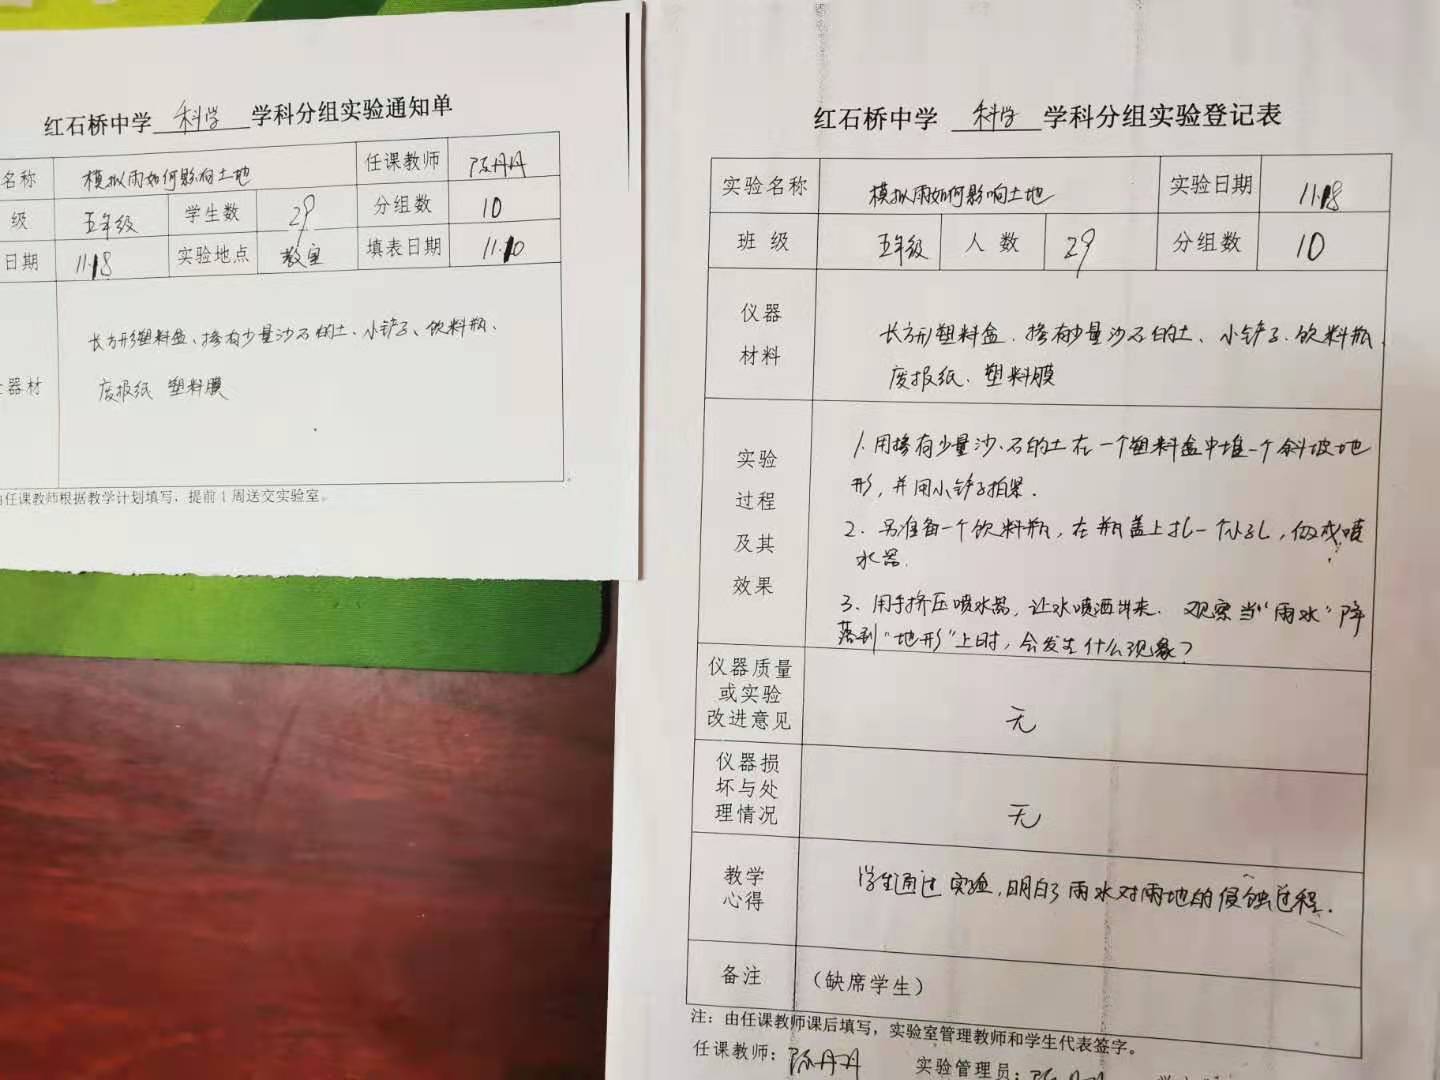 红石桥中学 科学 学科分组实验通知单
名称 模拟雨如何影响土地 任课教师 陈丹丹
级 五年级 学生数 29 分组数 10
日期 11.18 实验地点 教室 填表日期 11.10
器材
长方形塑料盒、掺有少量沙石的土、小铲子、饮料瓶、
废报纸 塑料膜
任课教师根据教学计划填写，提前1周送交实验室。
红石桥中学 科学 学科分组实验登记表
实验名称 模拟雨如何影响土地 实验日期 11.18
班级 五年级 人数 29 分组数 10
仪器
材料
长方形塑料盒、掺有少量沙石的土、小铲子、饮料瓶、
废报纸、塑料膜
实验
过程
及其
效果
1.用掺有少量沙、石的土在一个塑料盒中堆一个斜坡地
形，并用小铲子拍紧.
2.另准备一个饮料瓶，在瓶盖上扎一个小孔，做成喷
水器.
3.用手挤压喷水器，让水喷洒出来. 观察当“雨水”降
落到“地形”上时，会发生什么现象？
仪器质量
或实验
改进意见
无
仪器损
坏与处
理情况
无
教学
心得
学生通过实验，明白了雨水对雨地的侵蚀过程.
备注 （缺席学生）
注：由任课教师课后填写，实验室管理教师和学生代表签字。
任课教师：陈丹丹 实验管理员：